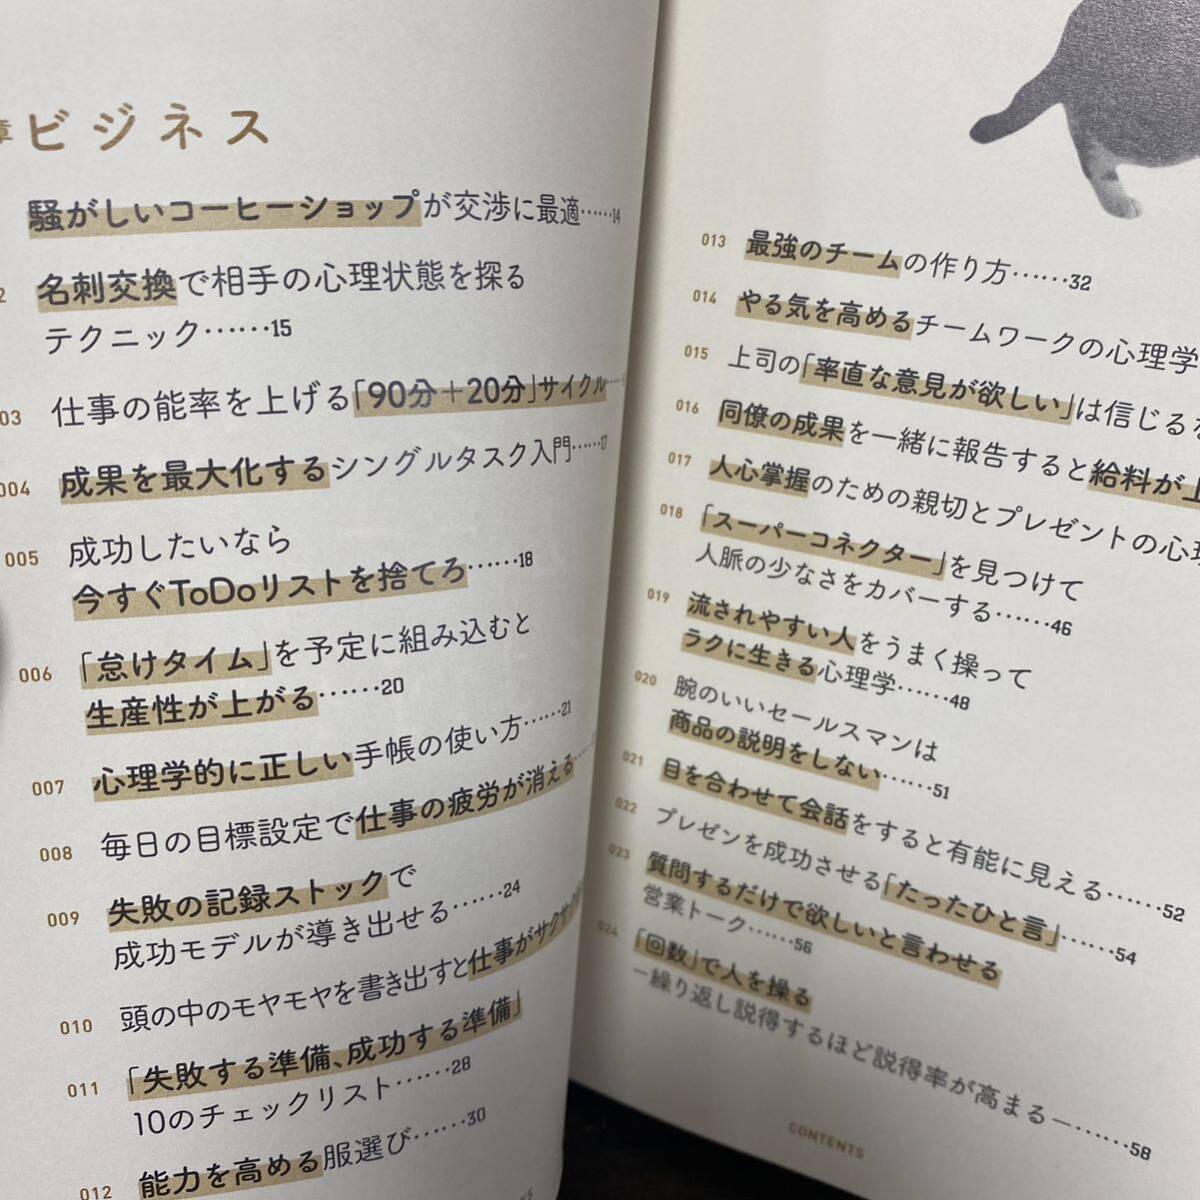 章 ビジネス
騒がしいコーヒーショップが交渉に最適……14
2 名刺交換で相手の心理状態を探る
テクニック……15
03 仕事の能率を上げる「90分+20分」サイクル……
004 成果を最大化するシングルタスク入門……17
005 成功したいなら
今すぐToDoリストを捨てろ……18
006 「怠けタイム」を予定に組み込むと
生産性が上がる……20
007 心理学的に正しい手帳の使い方……21
008 毎日の目標設定で仕事の疲労が消える……
009 失敗の記録ストックで
成功モデルが導き出せる……24
010 頭の中のモヤモヤを書き出すと仕事がサクサク
011 「失敗する準備、成功する準備」
10のチェックリスト……28
012 能力を高める服選び……30
013 最強のチームの作り方……32
014 やる気を高めるチームワークの心理学
015 上司の「率直な意見が欲しい」は信じるな
016 同僚の成果を一緒に報告すると給料が上
017 人心掌握のための親切とプレゼントの心理
018 「スーパーコネクター」を見つけて
人脈の少なさをカバーする……46
019 流されやすい人をうまく操って
ラクに生きる心理学……48
020 腕のいいセールスマンは
商品の説明をしない……51
021 目を合わせて会話をすると有能に見える……52
022 プレゼンを成功させる「たったひと言」……54
023 質問するだけで欲しいと言わせる
営業トーク……56
024 「回数」で人を操る
―繰り返し説得するほど説得率が高まる―……58
CONTENTS